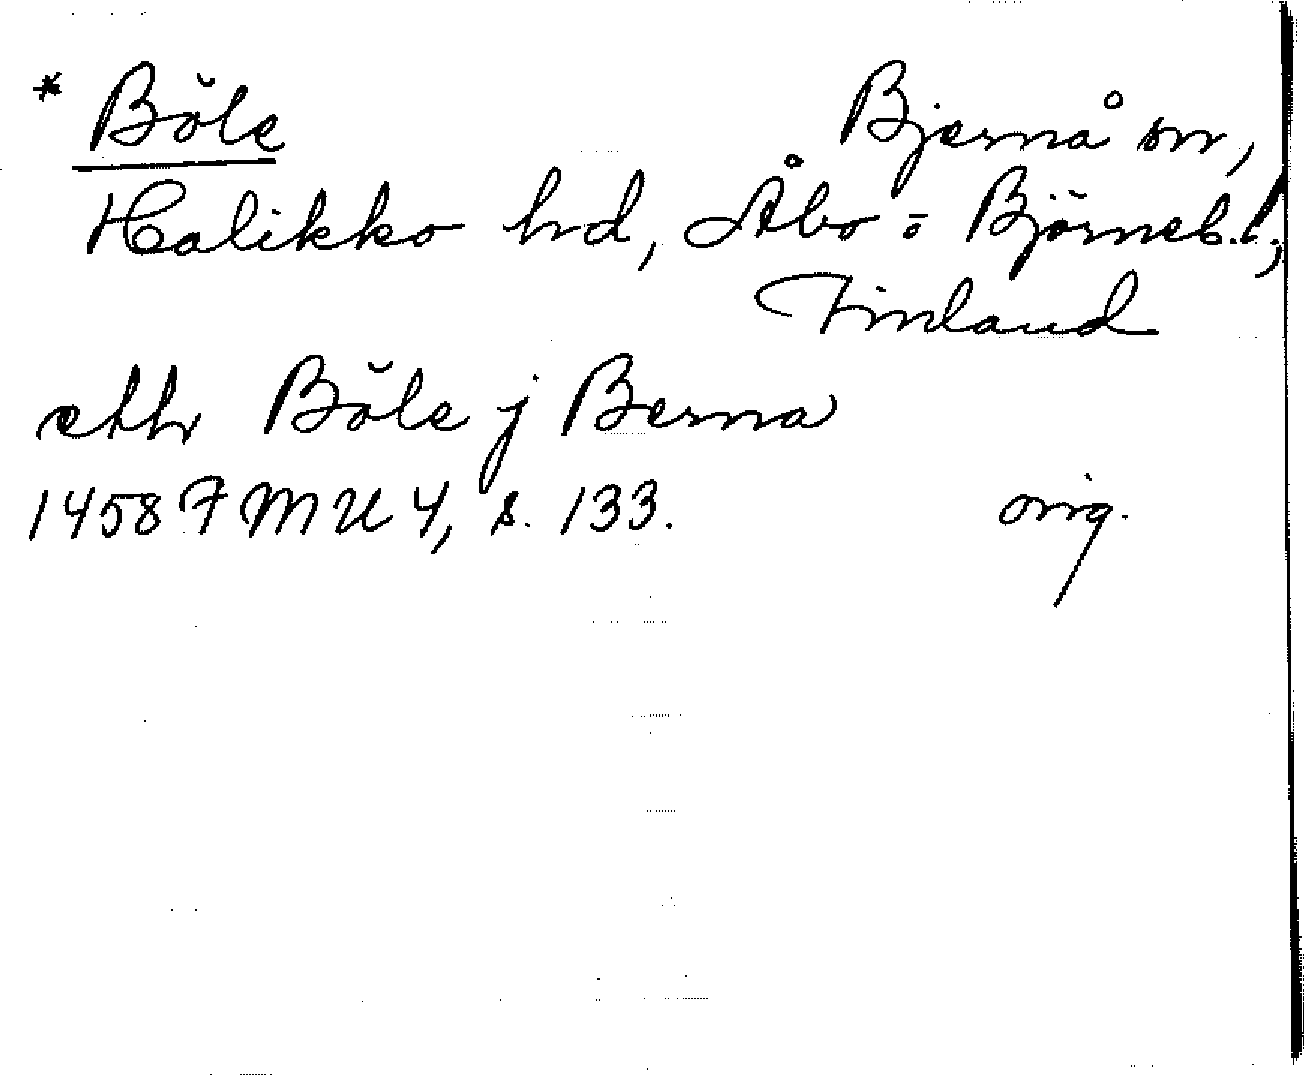 * Böle Bjärnå sn,
Halikko hd, Åbo o Björneb. l.,
Finland
etthr Böle j Berna
1458 FMU 4, s. 133. orig.